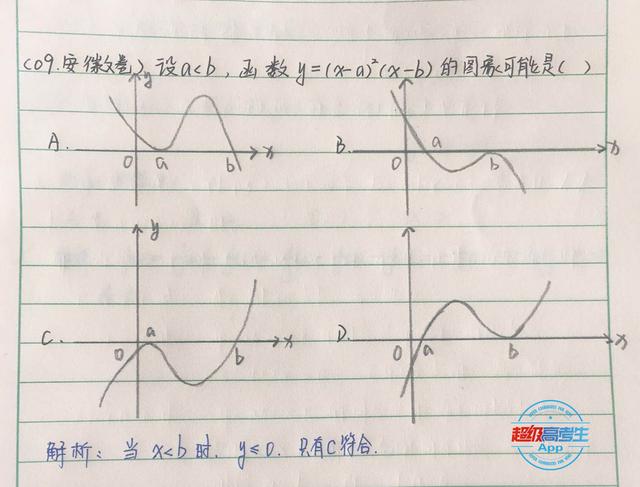 (09.安徽文卷) 设a<b, 函数 y=(x-a)²(x-b) 的图象可能是( )
A. y O a b x
B. O a b x
C. y O a b x
D. O a b x
解析: 当 x<b 时, y≤0. 只有C符合.
超级高考生
App